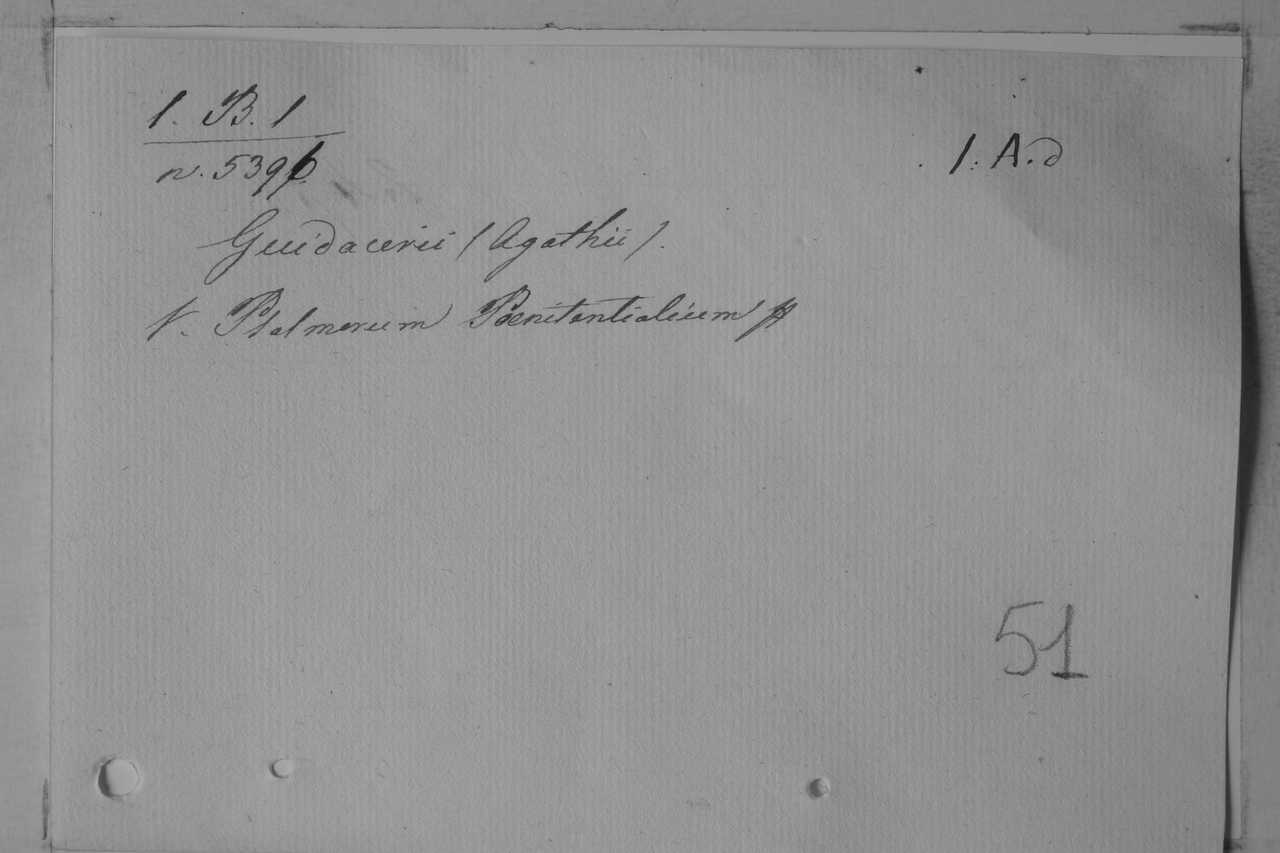 1. B. 1
n. 5396.
1. A. d
Guidacerii (Agathii).
V. Psalmorum Poenitentialium
51